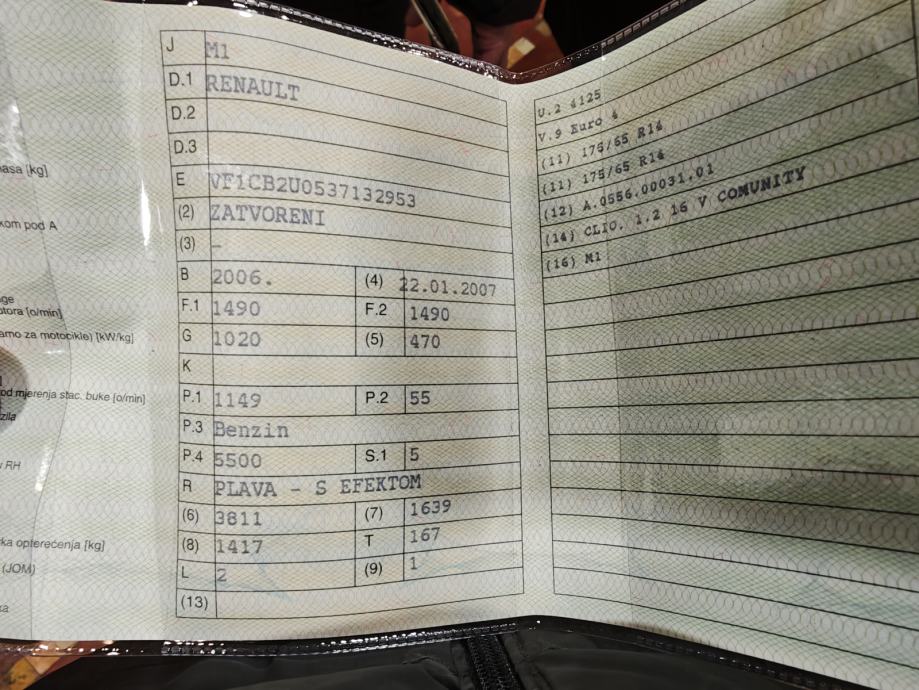 asa [kg]
kom pod A
ge
otora [o/min]
amo za motocikle) [kW/kg]
od mjerenja stac. buke [o/min]
zila
v RH
ka opterećenja [kg]
(JOM)
ka
J M1
D.1 RENAULT
D.2
D.3
E VF1CB2U0537132953
(2) ZATVORENI
(3) –
B 2006. (4) 22.01.2007
F.1 1490 F.2 1490
G 1020 (5) 470
K
P.1 1149 P.2 55
P.3 Benzin
P.4 5500 S.1 5
R PLAVA - S EFEKTOM
(6) 3811 (7) 1639
(8) 1417 T 167
L 2 (9) 1
(13)
U.2 4125
V.9 Euro 4
(11) 175/65 R14
(11) 175/65 R14
(12) A.0556.00031.01
(14) CLIO. 1.2 16 V COMUNITY
(16) M1